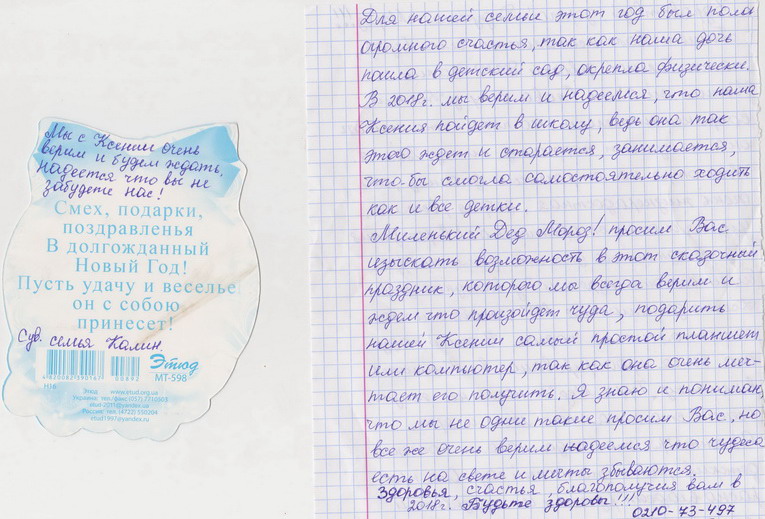 Мы с Ксенией очень
верим и будем ждать,
надеемся что вы не
забудете нас!
Смех, подарки,
поздравленья
В долгожданный
Новый Год!
Пусть удачу и веселье
он с собою
принесет!
С ув. семья Калин.
Этюд
MT-598
4820082590167 00892
Н16
Этюд www.etud.org.ua
Украина: тел./факс (057) 7210303
etud-2011@yandex.ru
Россия: тел. (4722) 550304
etud1997@yandex.ru
Для нашей семьи этот год был полон
огромного счастья, так как наша дочь
пошла в детский сад, окрепла физически.
В 2018г. мы верим и надеемся, что наша
Ксения пойдет в школу, ведь она так
этого ждет и старается, занимается,
что-бы смогла самостоятельно ходить
как и все детки.
Миленький Дед Мороз! просим Вас
изыскать возможность в этот сказочный
праздник, которого мы всегда верим и
ждем что произойдет чуда, подарить
нашей Ксении самый простой планшет
или компьютер, так как она очень меч-
тает его получить. Я знаю и понимаю,
что мы не одни такие просим Вас, но
все же очень верим надеемся что чудеса
есть на свете и мечты сбываются.
Здоровья, счастья, благополучия вам в
2018г. Будьте здоровы!!!
0210-73-497